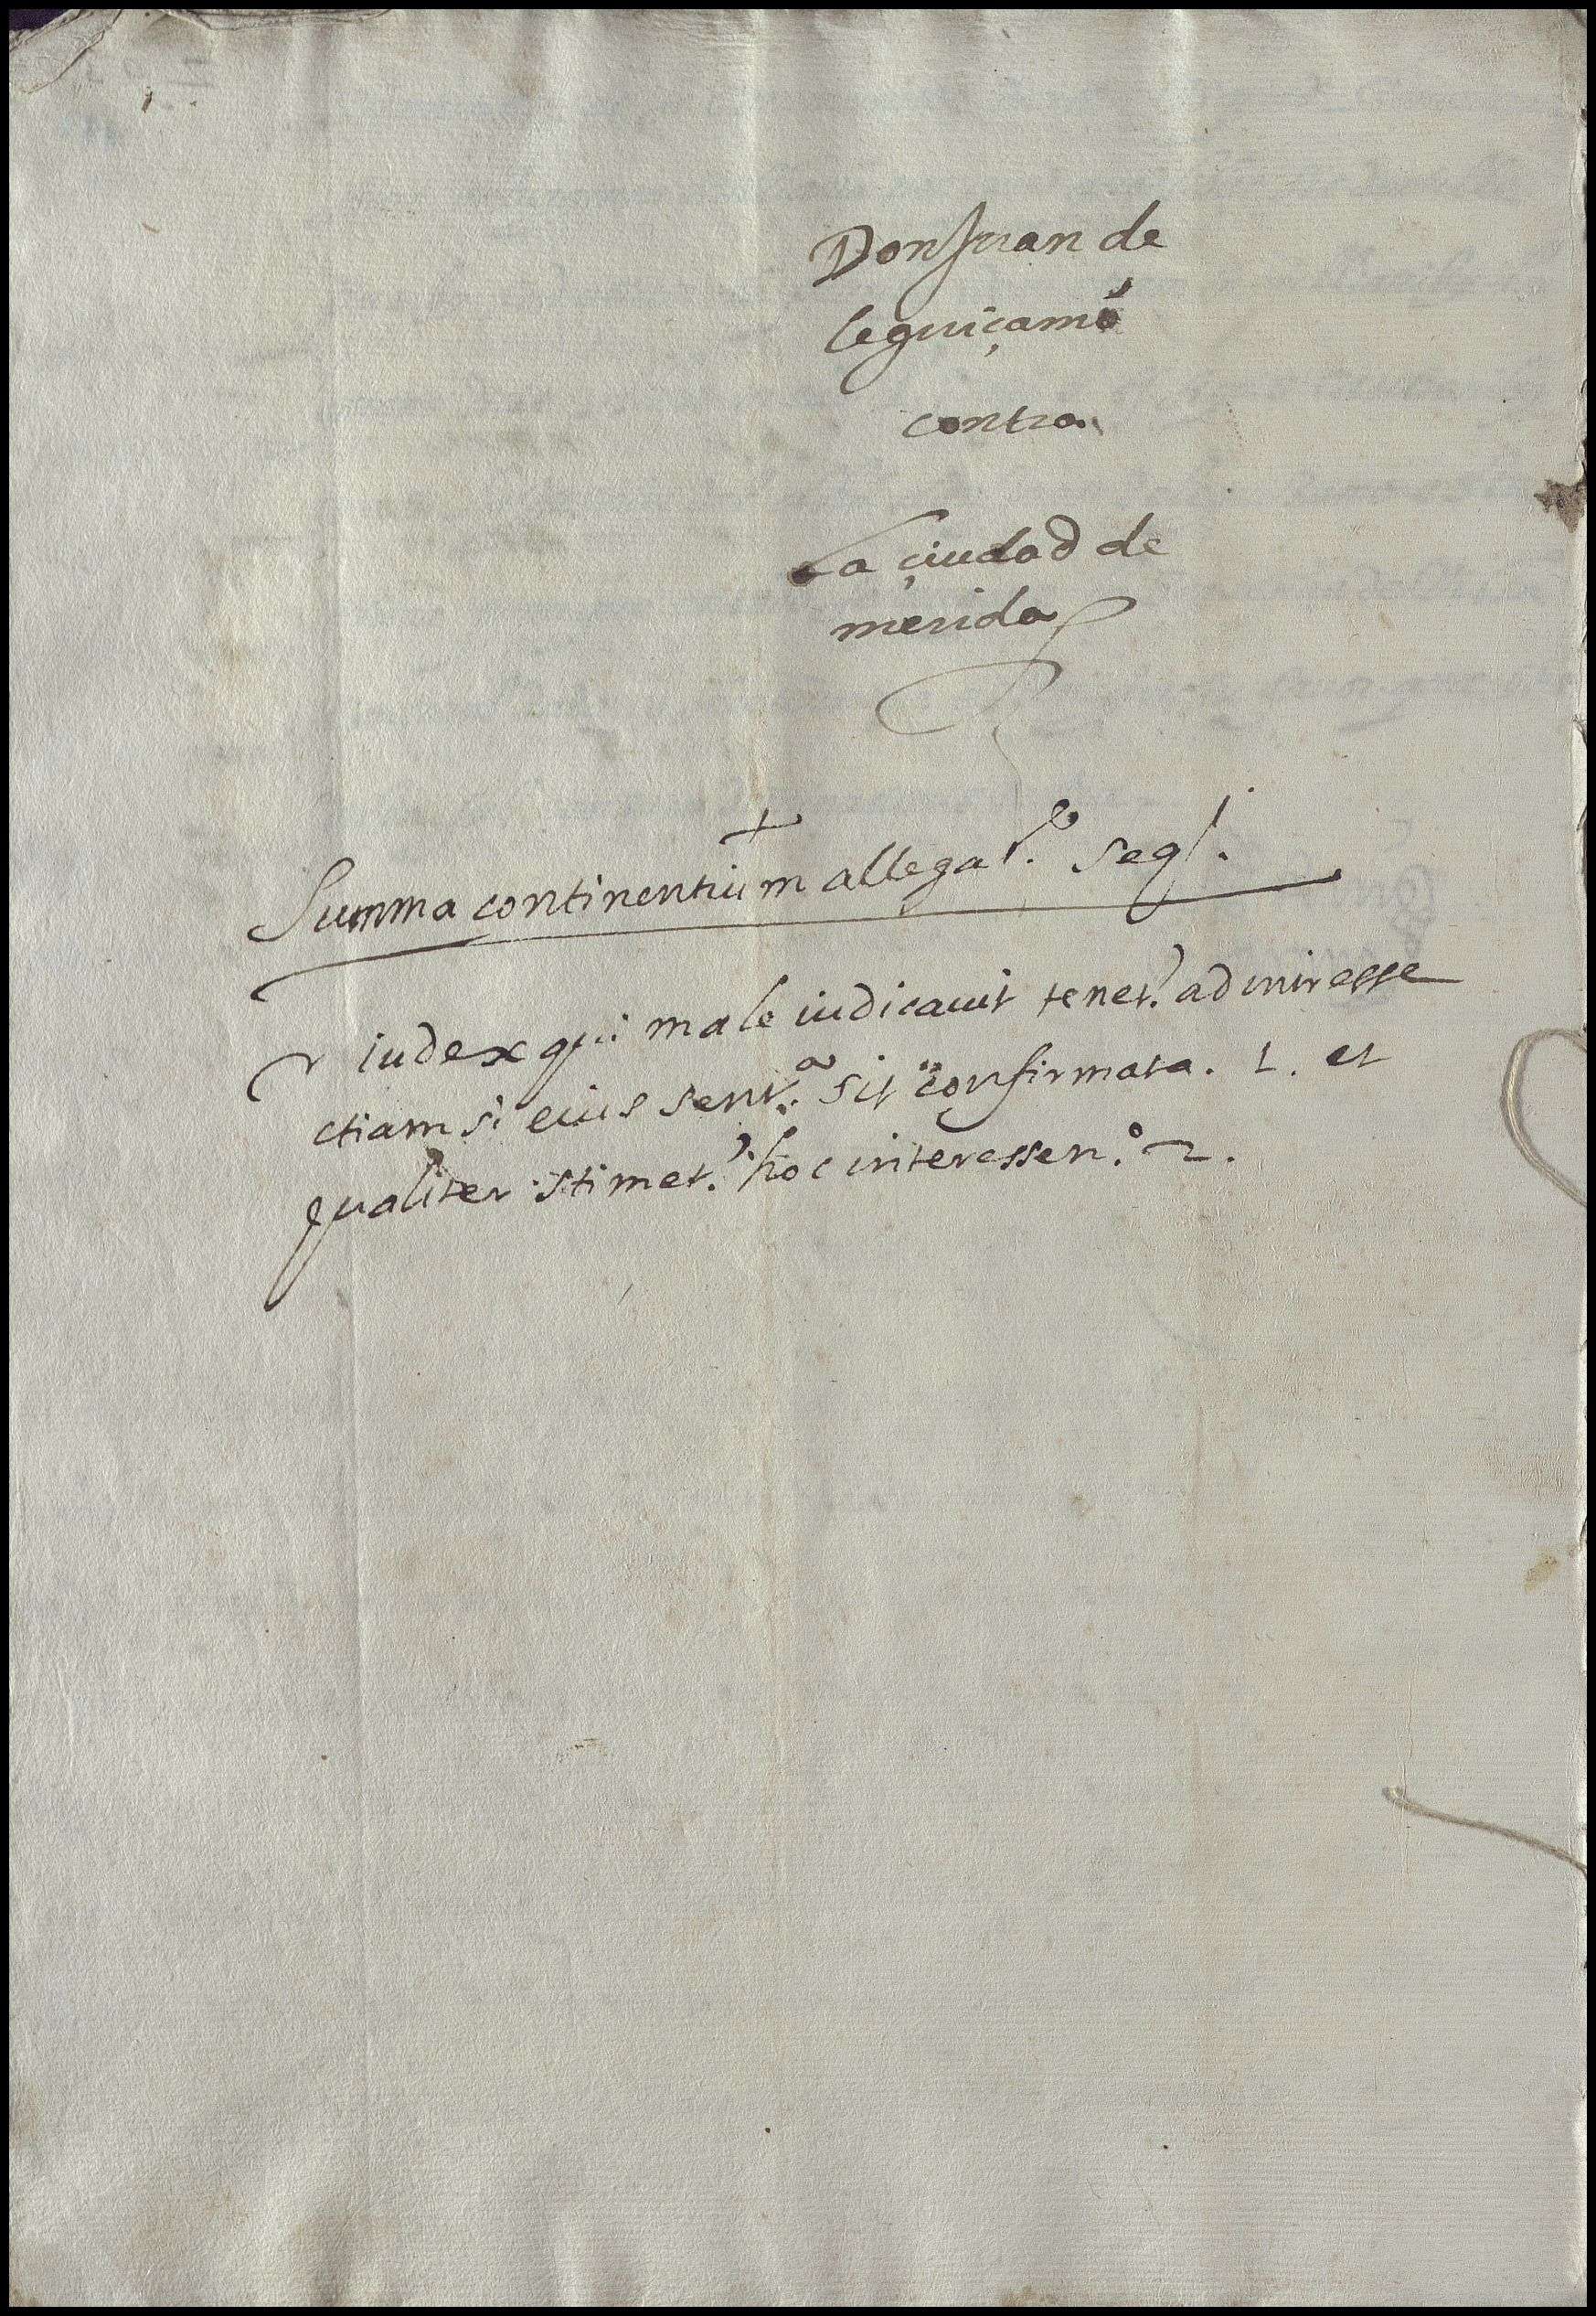 Don Juan de
leguiçamo
contra
La çiudad de
merida
Summa continentium allegat.e seq.
iudex qui male iudicavit tenet.r ad interesse
etiam si eius sent.a sit confirmata. 1. et
qualiter stimet.r hoc interessen.o 2.